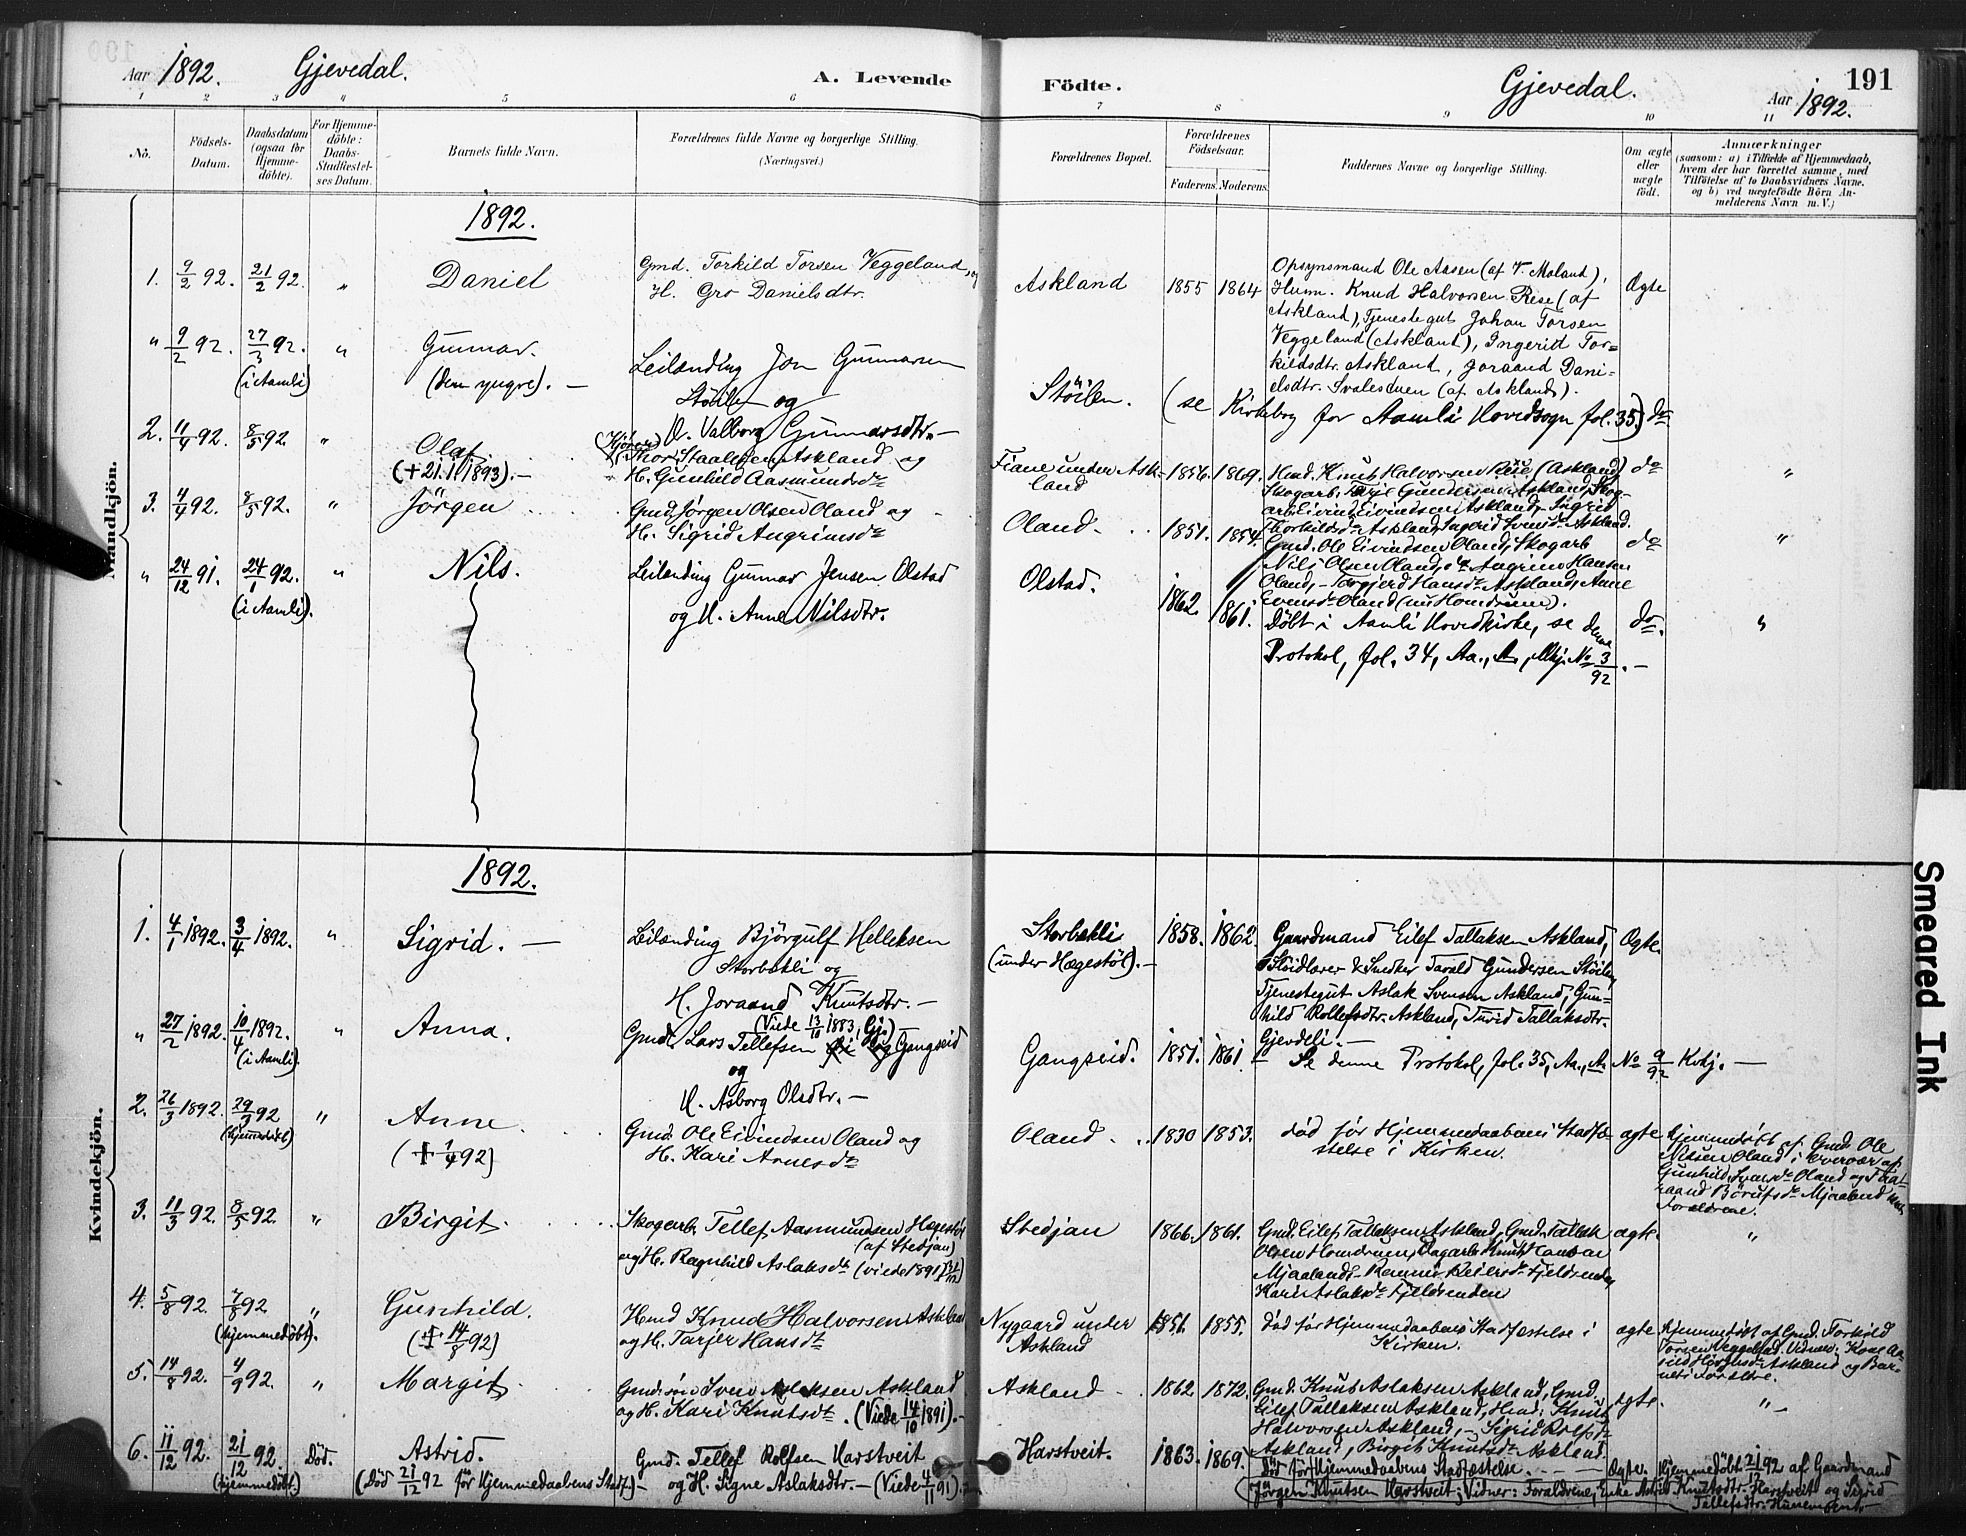 Aar 1892. Gjevedal. A. Levende Födte. Gjevedal. Aar 1892. 191
1 2 3 4 5 6 7 8 9 10 11
No. Födsels-Datum. Daabsdatum (ogsaa for Hjemme-döbte). For Hjemme-döbte: Daabs-Stadfæstel-ses Datum. Barnets fulde Navn. Forældrenes fulde Navne og borgerlige Stilling. (Næringsvei.) Forældrenes Bopæl. Forældrenes Födselsaar. Faderens. Moderens. Faddernes Navne og borgerlige Stilling. Om ægte eller uægte födt. Anmærkninger
(saasom: a) i Tilfælde af Hjemmedaab,
hvem der har forrettet samme, med
Tilföielse af to Daabsvidners Navne.
og b) ved uægtefödte Börn An-
melderens Navn m. V.)
Mandkjön.
1892.
1. 9/2 92. 21/2 92. " Daniel Gmd. Torkild Torsen Veggeland, og
H. Gro Danielsdtr. Askland 1855 1864 Opsynsmand Ole Aasen (af V. Moland),
Husm. Knud Halvorsen Rese (af
Askland), Tjenestegut Johan Torsen
Veggeland (Askland), Ingerid Tor=
kildsdtr. Askland, Joraand Dani-
elsdtr. Svalestuen (af Askland). Ægte
" 9/2 92. 27/3 92. (i Aamli) " Gunnar. (den yngre). — Leilænding Jon Gunnarsen
Stöilen og
H. Valborg Gunnarsdtr. — Stöilen. (se Kirkebog for Aamli Hovedsogn fol. 35.) do
2. 11/4 92. 8/5 92. " Olaf (+ 21.1.1893). — Thor Staalesen Askland og
H. Gunhild Aasmundsdr Fiane under Ask-
land 1856. 1869. Hmd. Knut Halvorsen Rese (Askland)
Skogarb. Tarje Gundersen Askland, Skog-
arb. Eivind Eivindsen Askland, Ingrid
Thorkildsdr Askland, Ingerid Svensdr Askland. do "
3. 4/4 92. 8/5 92. " Jörgen Gmd. Jörgen Olsen Oland og
H. Sigrid Angrimsdr Oland. 1851. 1854. Gmd. Ole Eivindsen Oland, Skogarb
Nils Olsen Oland, Angrim Hansen
Oland, — Torgjerd Hansdr Askland, Anne
Evensdr Oland (nu Homdrum). do "
" 24/12 91. 24/1 92. (i Aamli). " Nils. Leilænding Gunnar Jensen Olstad
og H. Anne Nilsdtr. Olstad. 1862. 1861. Döbt i Aamli Hovedkirke, se denne
Protokol, fol. 34, Aa., A, Mkj. No 3/92. — do. "
Kvindekjön.
1892.
1. 4/1 1892. 3/4 1892. " Sigrid. — Leilænding Björgulf Helleksen
Storbækli og
H. Joraand Knutsdtr. —
(Viede 13/10 1883, Gj.) Storbækli
(under Hægestöl). — 1858. 1862. Gaardmand Eilef Tallaksen Askland,
Snedker Tarald Gundersen Stöilen,
Tjenestegut Aslak Svensen Askland, Gun-
hild Rollefsdtr. Askland, Turid Tallaksdtr.
Gjevdeli. — Ægte.
" 27/2 1892. 10/4 1892. (i Aamli). " Anna. Gmd. Lars Tellefsen Gangseid
og
H. Asborg Olsdtr. — Gangseid. 1851. 1861. Se denne Protokol, fol. 35, Aa., A. No 9/92 Kvkj. —
2. 26/3 1892. 29/3 92 (hjemmedöbt) " Anne (+ 1/4 92) Gmd. Ole Eivindsen Oland og
H. Kari Arnesdr Oland. 1830 1853. död för Hjemmedaabens Stadfæ-
stelse i Kirken. ægte Hjemmedöbt af Gmd. Ole
Nilsen Oland i Overvær af
Gunhild Svensdr Oland og Taa-
raand Börufsdr Mjaaland
Forældrene.
3. 11/3 92. 8/5 92. " Birgit. Skogarb. Tellef Aasmundsen Hægestöl
(af Stedjan)
og H. Ragnhild Aslaksdr (viede 1891) Stedjan 1866. 1861. Gmd. Eilef Tallaksen Askland, Gmd. Tallak
Olsen Homdrum, Dagarb. Knut
Mjaaland,
Kari Aslaksdr Fjeldsenden ægte. "
4. 5/8 92. 7/8 92 (hjemmedöbt). " Gunhild. (+ 14/8 92) Hmd Knud Halvorsen Askland
og H. Tarjer Hansdr Nygaard under
Askland 1851. 1855. död för Hjemmedaabens Stadfæstelse i
Kirken. ægte Hjemmedöbt af Gmd. Torkild
Torsen Veggeland. Vidner: Kone
Askland og Bar-
nets Forældre.
5. 14/8 92. 4/9 92. " Margit Gmd. sön Sven Aslaksen Askland
og H. Kari Knutsdr. (Viede 14/10 1891). — Askland 1862. 1872. Gmd. Knut Aslaksen Askland, Gmd.
Eilef Tallaksen Askland, Hmd. Knut
Halvorsen Askland, — Sigrid Rolfsdr
Askland, Birgit Knutsdr Askland. ægte. "
6. 11/12 92. 21/12 92. (hjemmedöbt.) Död. Astrid. (Död 21/12 92 för Hjemmedaabens Stadf.) — Gmd. Tellef Rolfsen Harstveit
og H. Signe Aslaksdtr. — (Viede 4/11 91). Harstveit. 1863. 1869. Död för Hjemmedaabens Stadfæstelse. Ægte. Hjemmedöbt 21/12 92 af Gaardmand
Jörgen Knutsen Harstveit; Vidner: Forældrene, Enke Astrid Knutsdtr. Harstveit og Sigrid
Tellefsdtr.
Smeared Ink